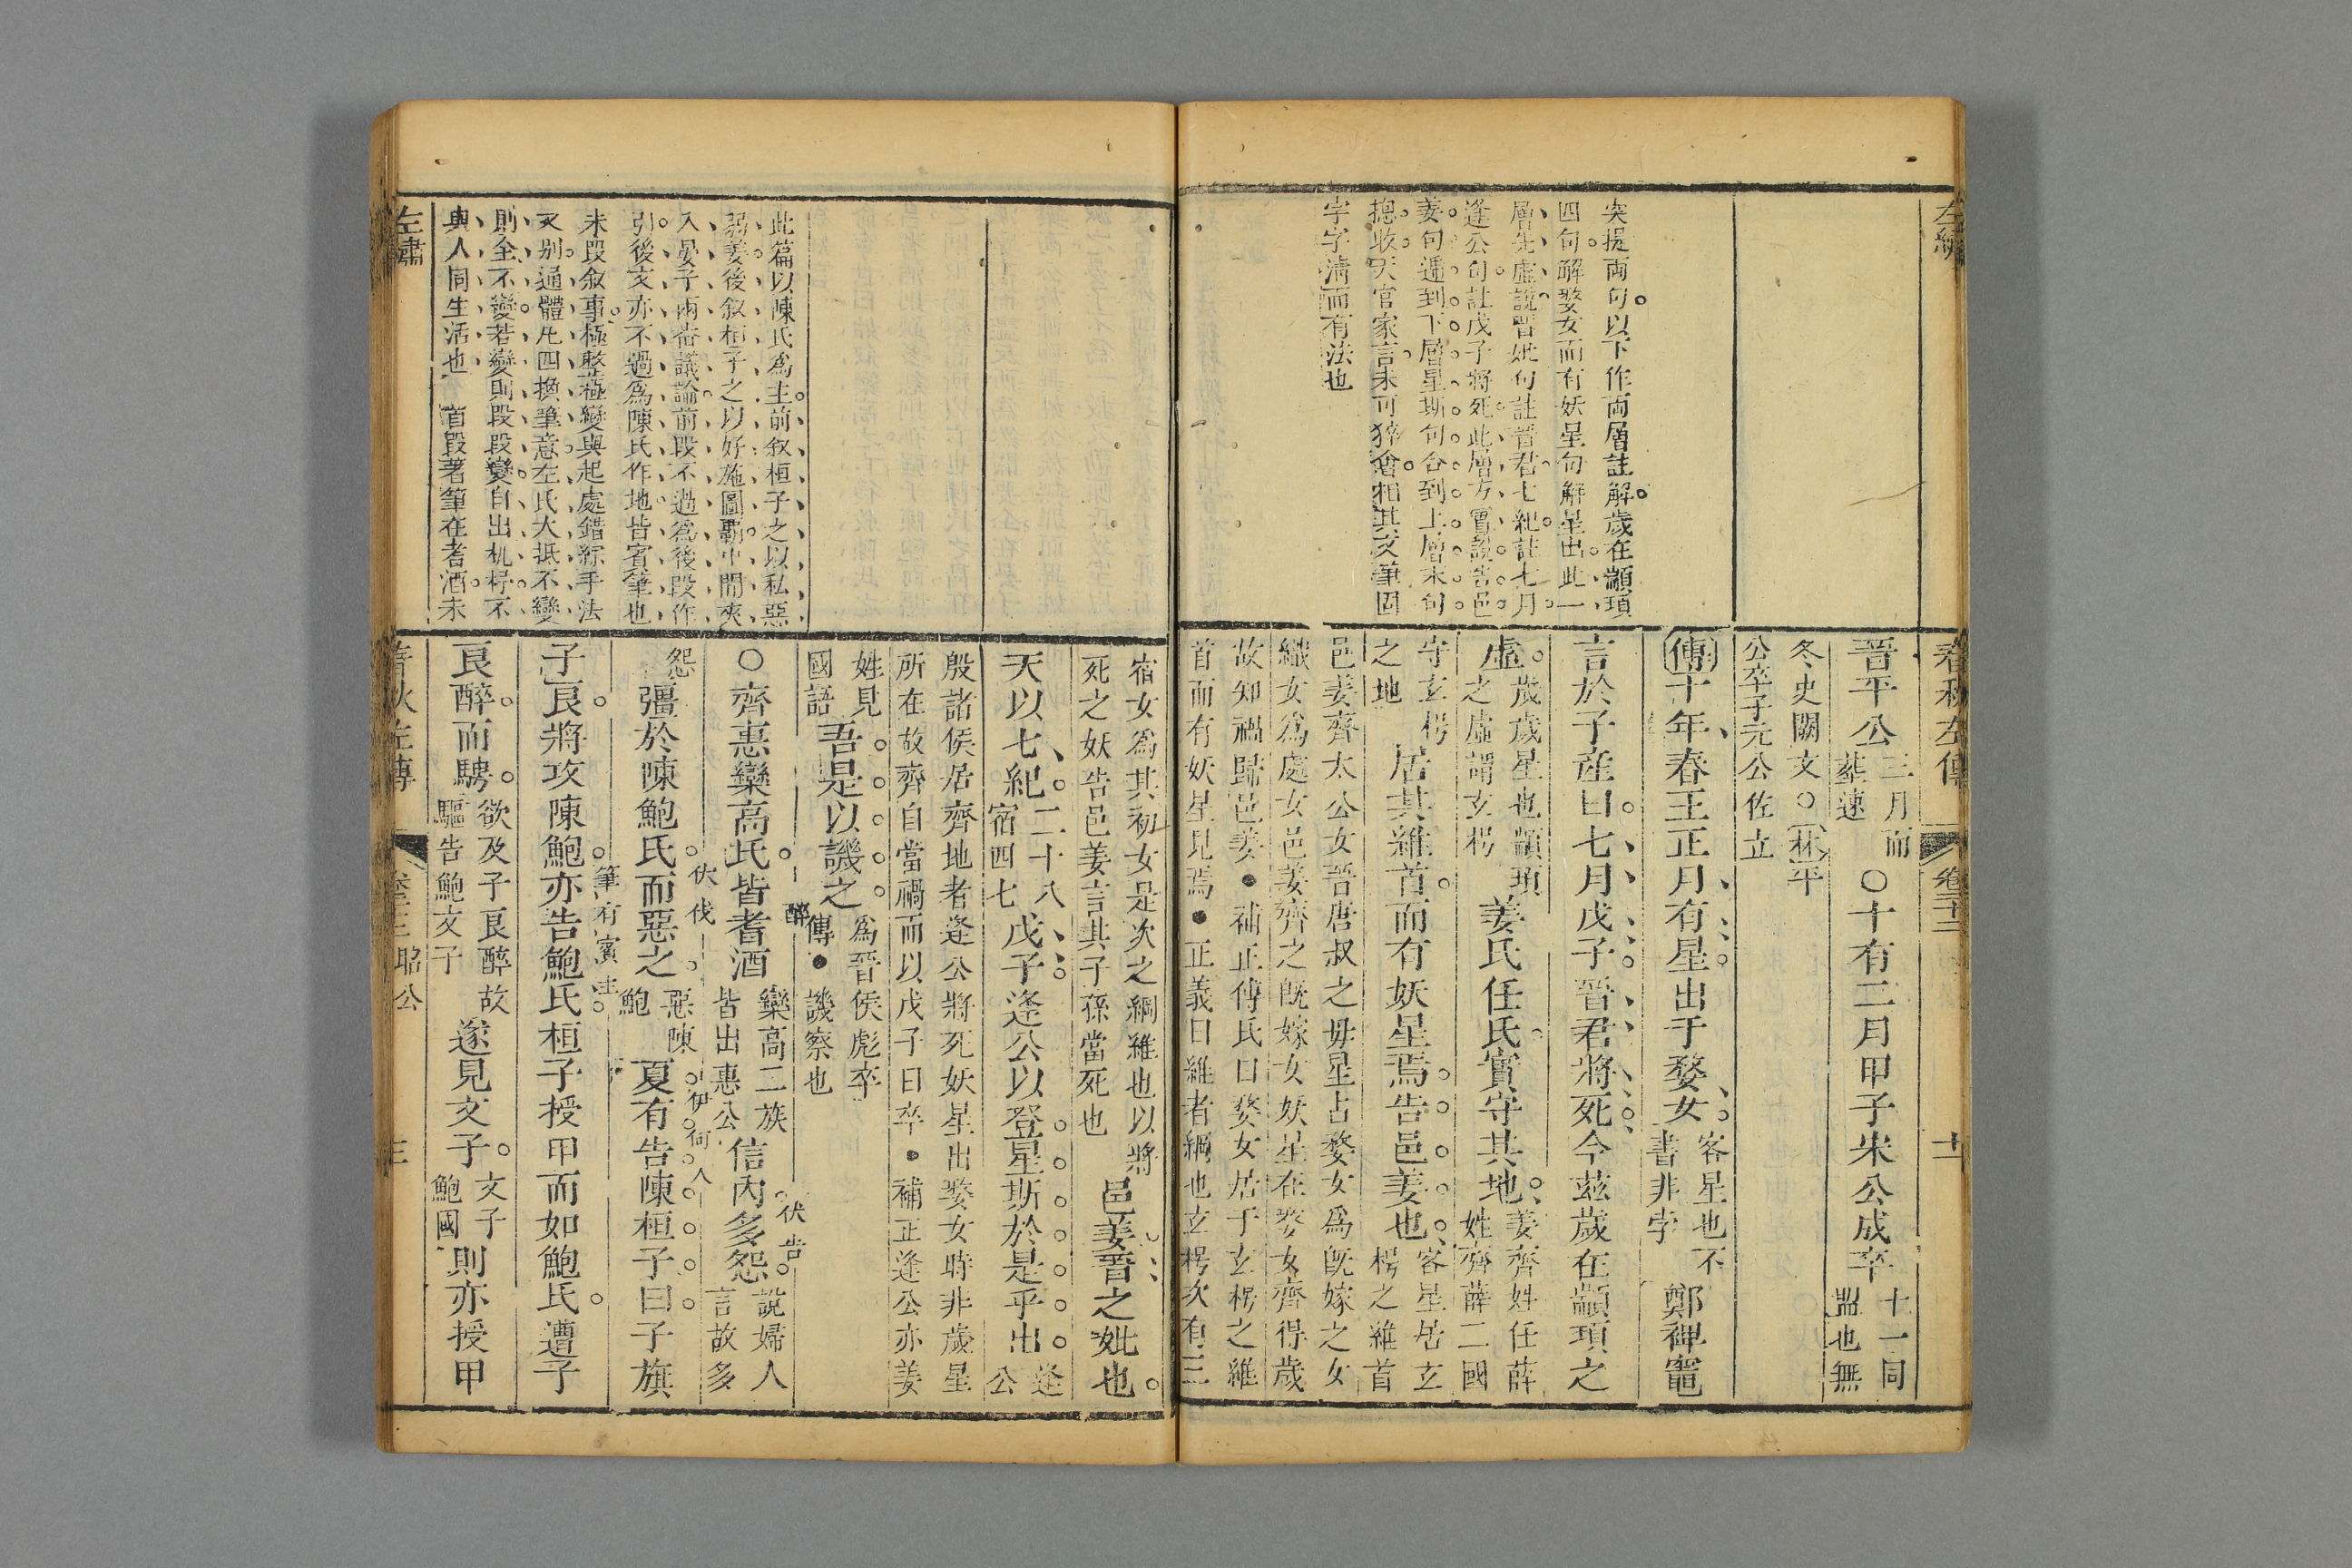 春秋左傳
卷二十三
十一
突提兩句以下作兩層註解歲在顓頊
四句解婺女而有妖星句解星出此一
層先虛說晉妣句註晉君七紀註七月
逢公句註戊子將死此層方實說告邑
姜句遞到下層星斯句合到上層末句
摠收天官家言未可猝會相其文筆固
字字清而有法也
晉平公三月而葬速○十有二月甲子宋公成卒十一同盟也無
冬史闕文○林平公卒子元公佐立
傳十年春王正月有星出于婺女客星也不書非孛鄭裨竈
言於子産曰七月戊子晉君將死今茲歲在顓頊之
虛歲歲星也顓頊之虛謂玄枵姜氏任氏實守其地姜齊姓任薛姓齊薛二國
守玄枵之地居其維首而有妖星焉告邑姜也客星居玄枵之維首
邑姜齊太公女晉唐叔之毋星占婺女爲旣嫁之女
織女爲處女邑姜齊之旣嫁女妖星在婺女齊得歲
故知禍歸邑姜●補正傅氏曰婺女居于玄枵之維
首而有妖星見焉●正義曰維者綱也玄枵次有三
宿女爲其初女是次之綱維也以將死之妖告邑姜言其子孫當死也邑姜晉之妣也
天以七紀二十八宿四七戊子逢公以登星斯於是乎出逢公
殷諸侯居齊地者逢公將死妖星出婺女時非歲星
所在故齊自當禍而以戊子日卒●補正逢公亦姜
姓見國語吾是以譏之爲晉侯彪卒傳●譏察也
○齊惠欒高氏皆耆酒欒高二族皆出惠公信內多怨說婦人言故多
怨彊於陳鮑氏而惡之惡陳鮑夏有告陳桓子曰子旗
子良將攻陳鮑亦告鮑氏桓子授甲而如鮑氏遭子
良醉而騁欲及子良醉故驅告鮑文子遂見文子文子鮑國則亦授甲
伏告
醉
伏伐
伊何人
筆有賓主
此篇以陳氏爲主前叙桓子之以私惡
弱姜後叙桓子之以好施圖覇中間夾
入晏子兩番議論前段不過爲後段作
引後文亦不過爲陳氏作地皆賓筆也
末段叙事極整極變與起處錯綜手法
又別通體凢四換筆意左氏大抵不變
則全不變若變則段段變自出机杼不
與人同生活也　首段著筆在耆酒末
左繡
春秋左傳
昭公